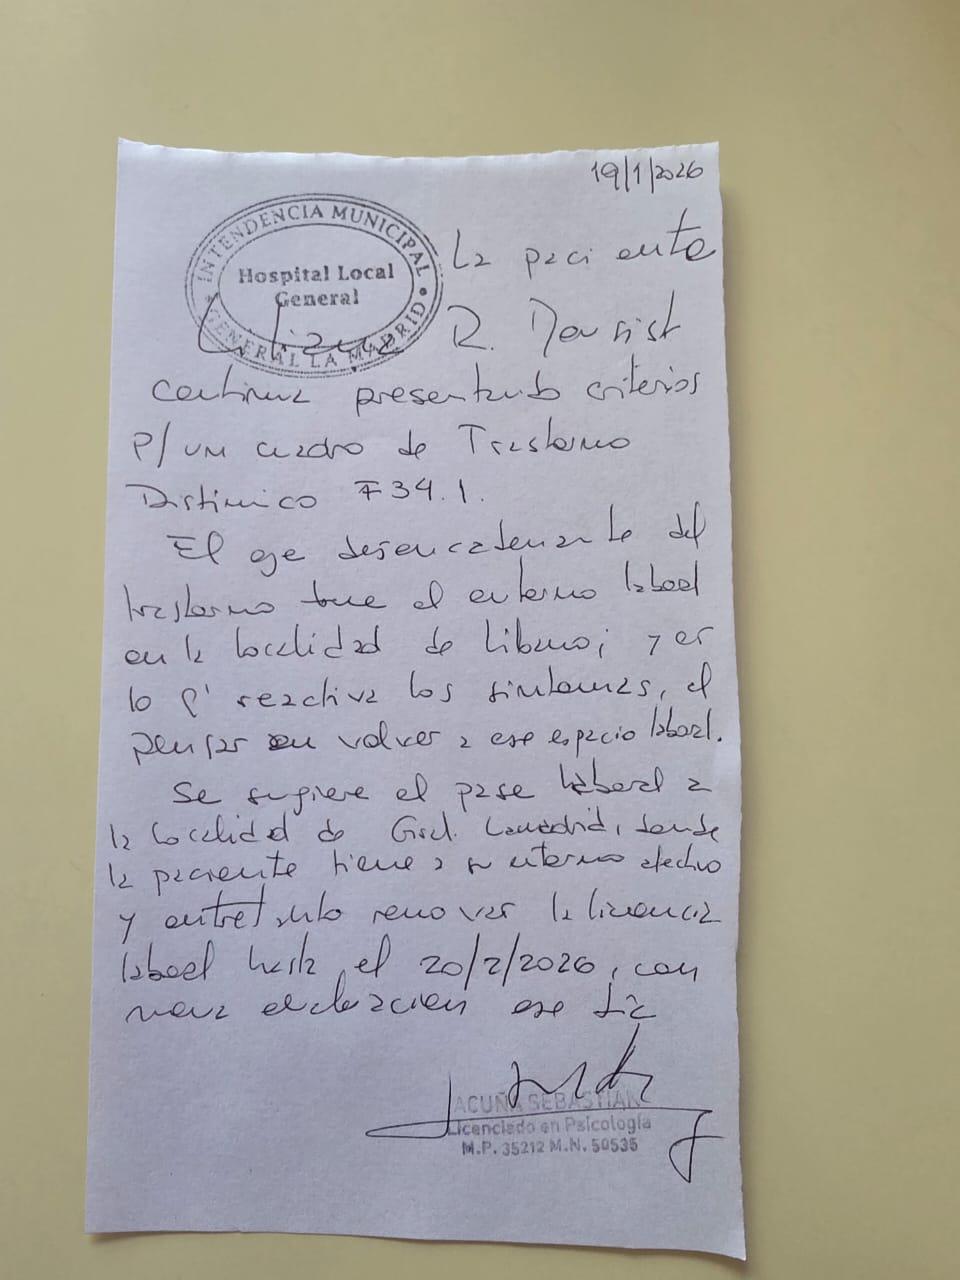 19/1/2026
INTENDENCIA MUNICIPAL
Hospital Local
General
GENERAL LA MADRID
La paciente
R.
continua presentando criterios
P/ un cuadro de Trastorno
Distimico F34.1.
El eje desencadenante del
trastorno fue el entorno laboral
en la localidad de Libano; y es
lo q' reactiva los sintomas, el
pensar en volver a ese espacio laboral.
Se sugiere el pase laboral a
la localidad de Gral. Lamadrid, donde
la paciente tiene a su entorno afectivo
y entretanto renovar la licencia
laboral hasta el 20/2/2026, con
nueva evaluacion ese dia
ACUÑA SEBASTIAN
Licenciado en Psicología
M.P. 35212 M.N. 50535